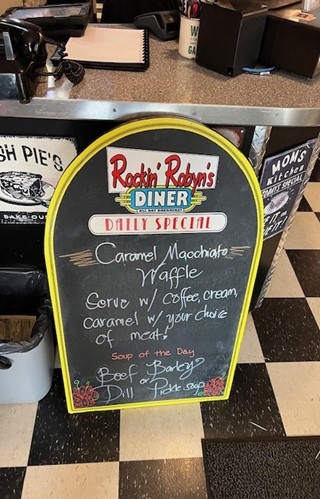 Rockin' Robyn's
DINER
DAILY SPECIAL
Caramel Macchiato
Waffle
Serve w/ coffee, cream,
caramel w/ your choice
of meat!
Soup of the Day
Beef Barley
or
Dill Pickle soup
SH PIE'S
BAKE-OUS
MOM'S
Kitchen
SPECIAL